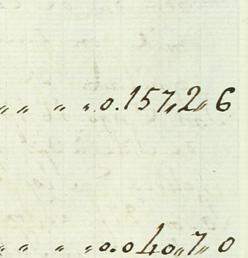 〃 〃 〃 〃 0.157,2〃6
〃 〃 〃 〃 0.040〃7〃0